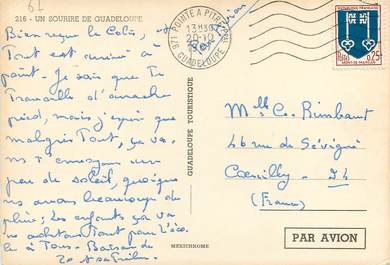 67
216 - UN SOURIRE DE GUADELOUPE
Par Avion
Bien reçu le Colis,
Tout est arrivé à
point. Je sais que Tu
Travaille d'arrache
pied, mais j'espère que
malgré Tout, ça va.
Je T'envoyons un
peu de soleil, quoique
nous avons beaucoup de
pluie. Les enfants ça va
nous achetons Tout pour l'éco
le à Tous. Baisers de
971 POINTE A PITRE PPAL
13H30
20-10
GUADELOUPE
REPUBLIQUE FRANÇAISE
0,25
POSTES
MONT-DE-MARSAN
GUADELOUPE TOURISTIQUE
MEXICHROME
Mlle C. Rimbaut
46 rue de Sévigné
Coeuilly - 94
(France)
PAR AVION